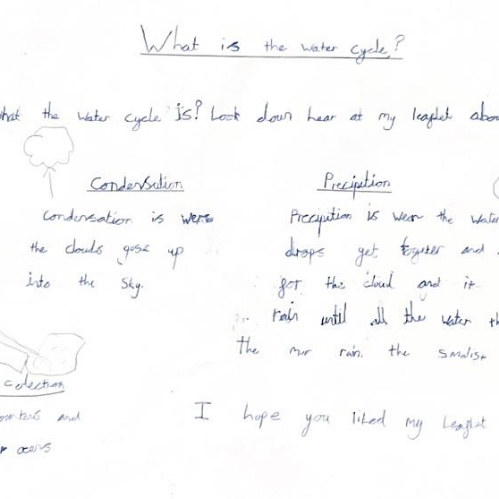 What is the water cycle?
what the water cycle is? Look down hear at my leaflet abou
Condensation
Condensation is were
the clouds gose up
into the sky.
Precipition
Precipition is wear the water
drops get togeter and
for the cloud and it
rain until all the water th
the mor rain. the smalist
colection
ountens and
r ocens
I hope you liked my leaflet